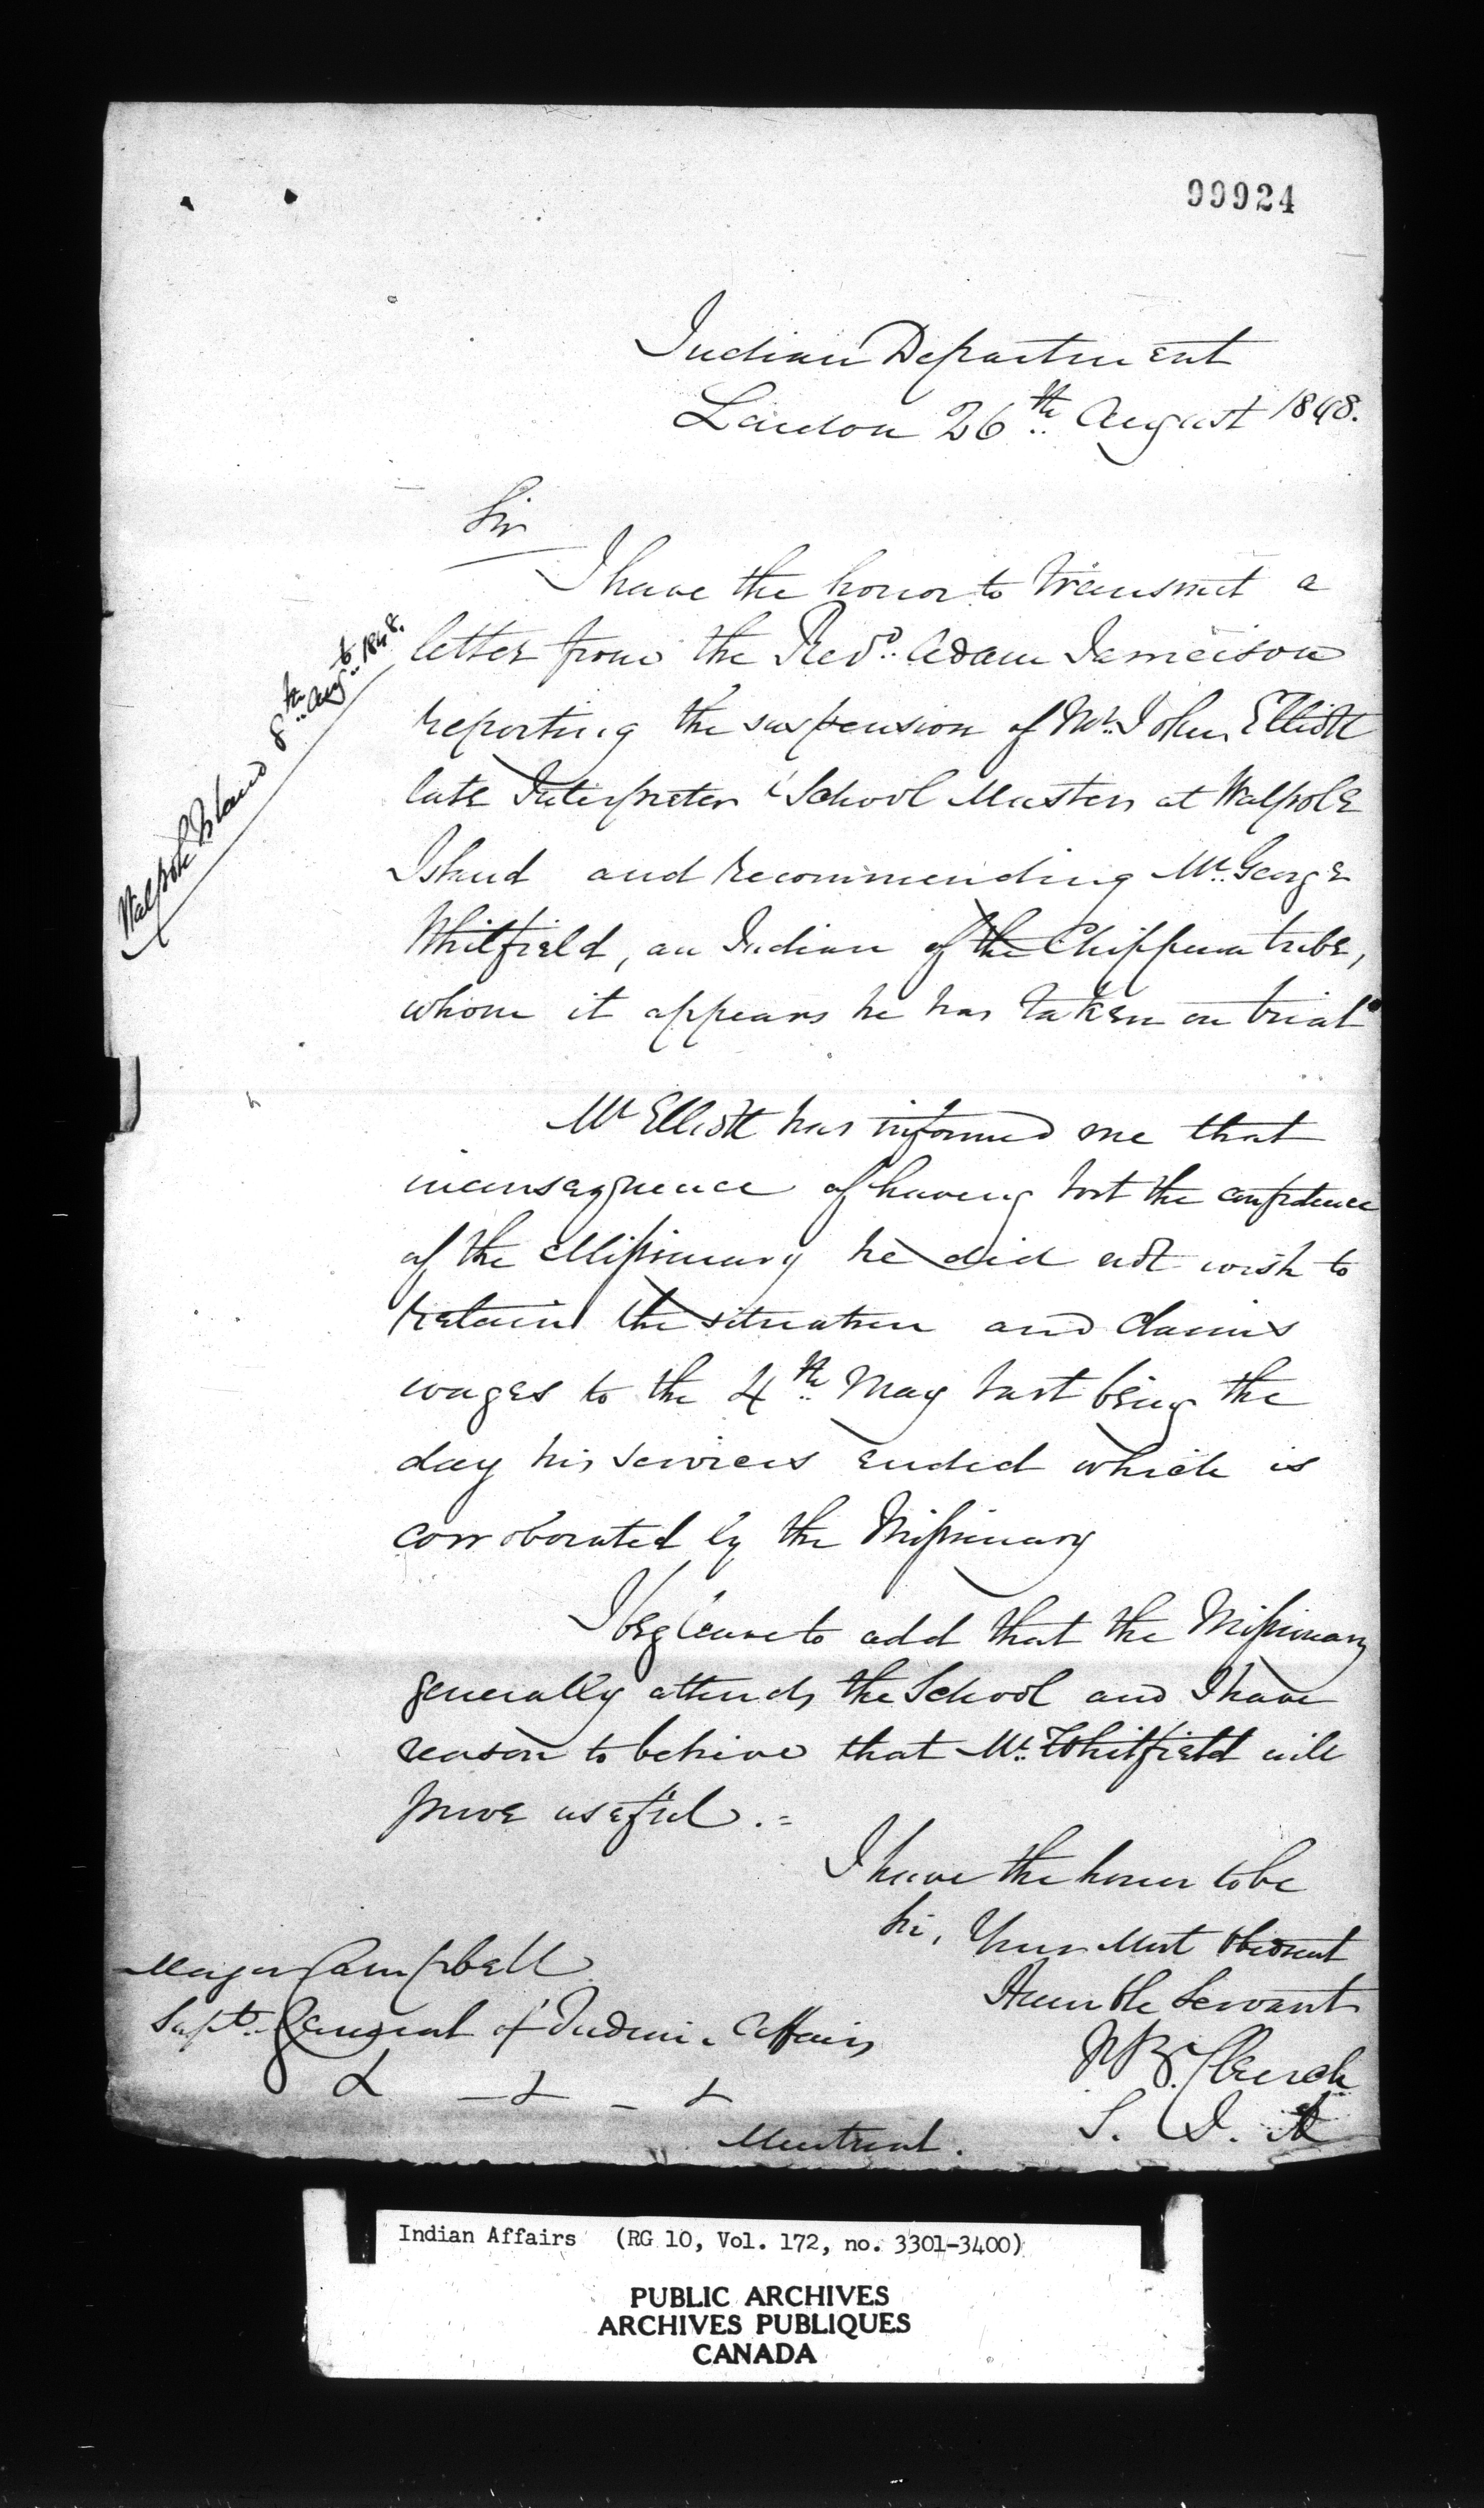 99924
Indian Department
London 26th August 1848.
Sir
I have the honor to transmit a
letter from the Revd. Adam Jameison
Walpole Island 8th Augt 1848.
reporting the suspension of Mr. John Elliott
late Interpreter & School Master at Walpole
Island and recommending Mr. George
Whitfield, an Indian of the Chippewa tribe,
whom it appears he has taken on trial
Mr Elliott has informed me that
inconsequence of having lost the confidence
of the Missionary he did not wish to
retain the situation and claims
wages to the 4th May last being the
day his services ended which is
corroborated by the Missionary
I beg leave to add that the Missionary
generally attends the School and I have
reason to believe that Mr. Whitfield will
prove useful.=
I have the honor to be
Sir, Your Most Obedient
Humble Servant
Major Campbell
Supt. General of Indian Affairs
J.B. Clench
S. I. A
& - & - &
Montreal.
Indian Affairs (RG 10, Vol. 172, no. 3301-3400)
PUBLIC ARCHIVES
ARCHIVES PUBLIQUES
CANADA